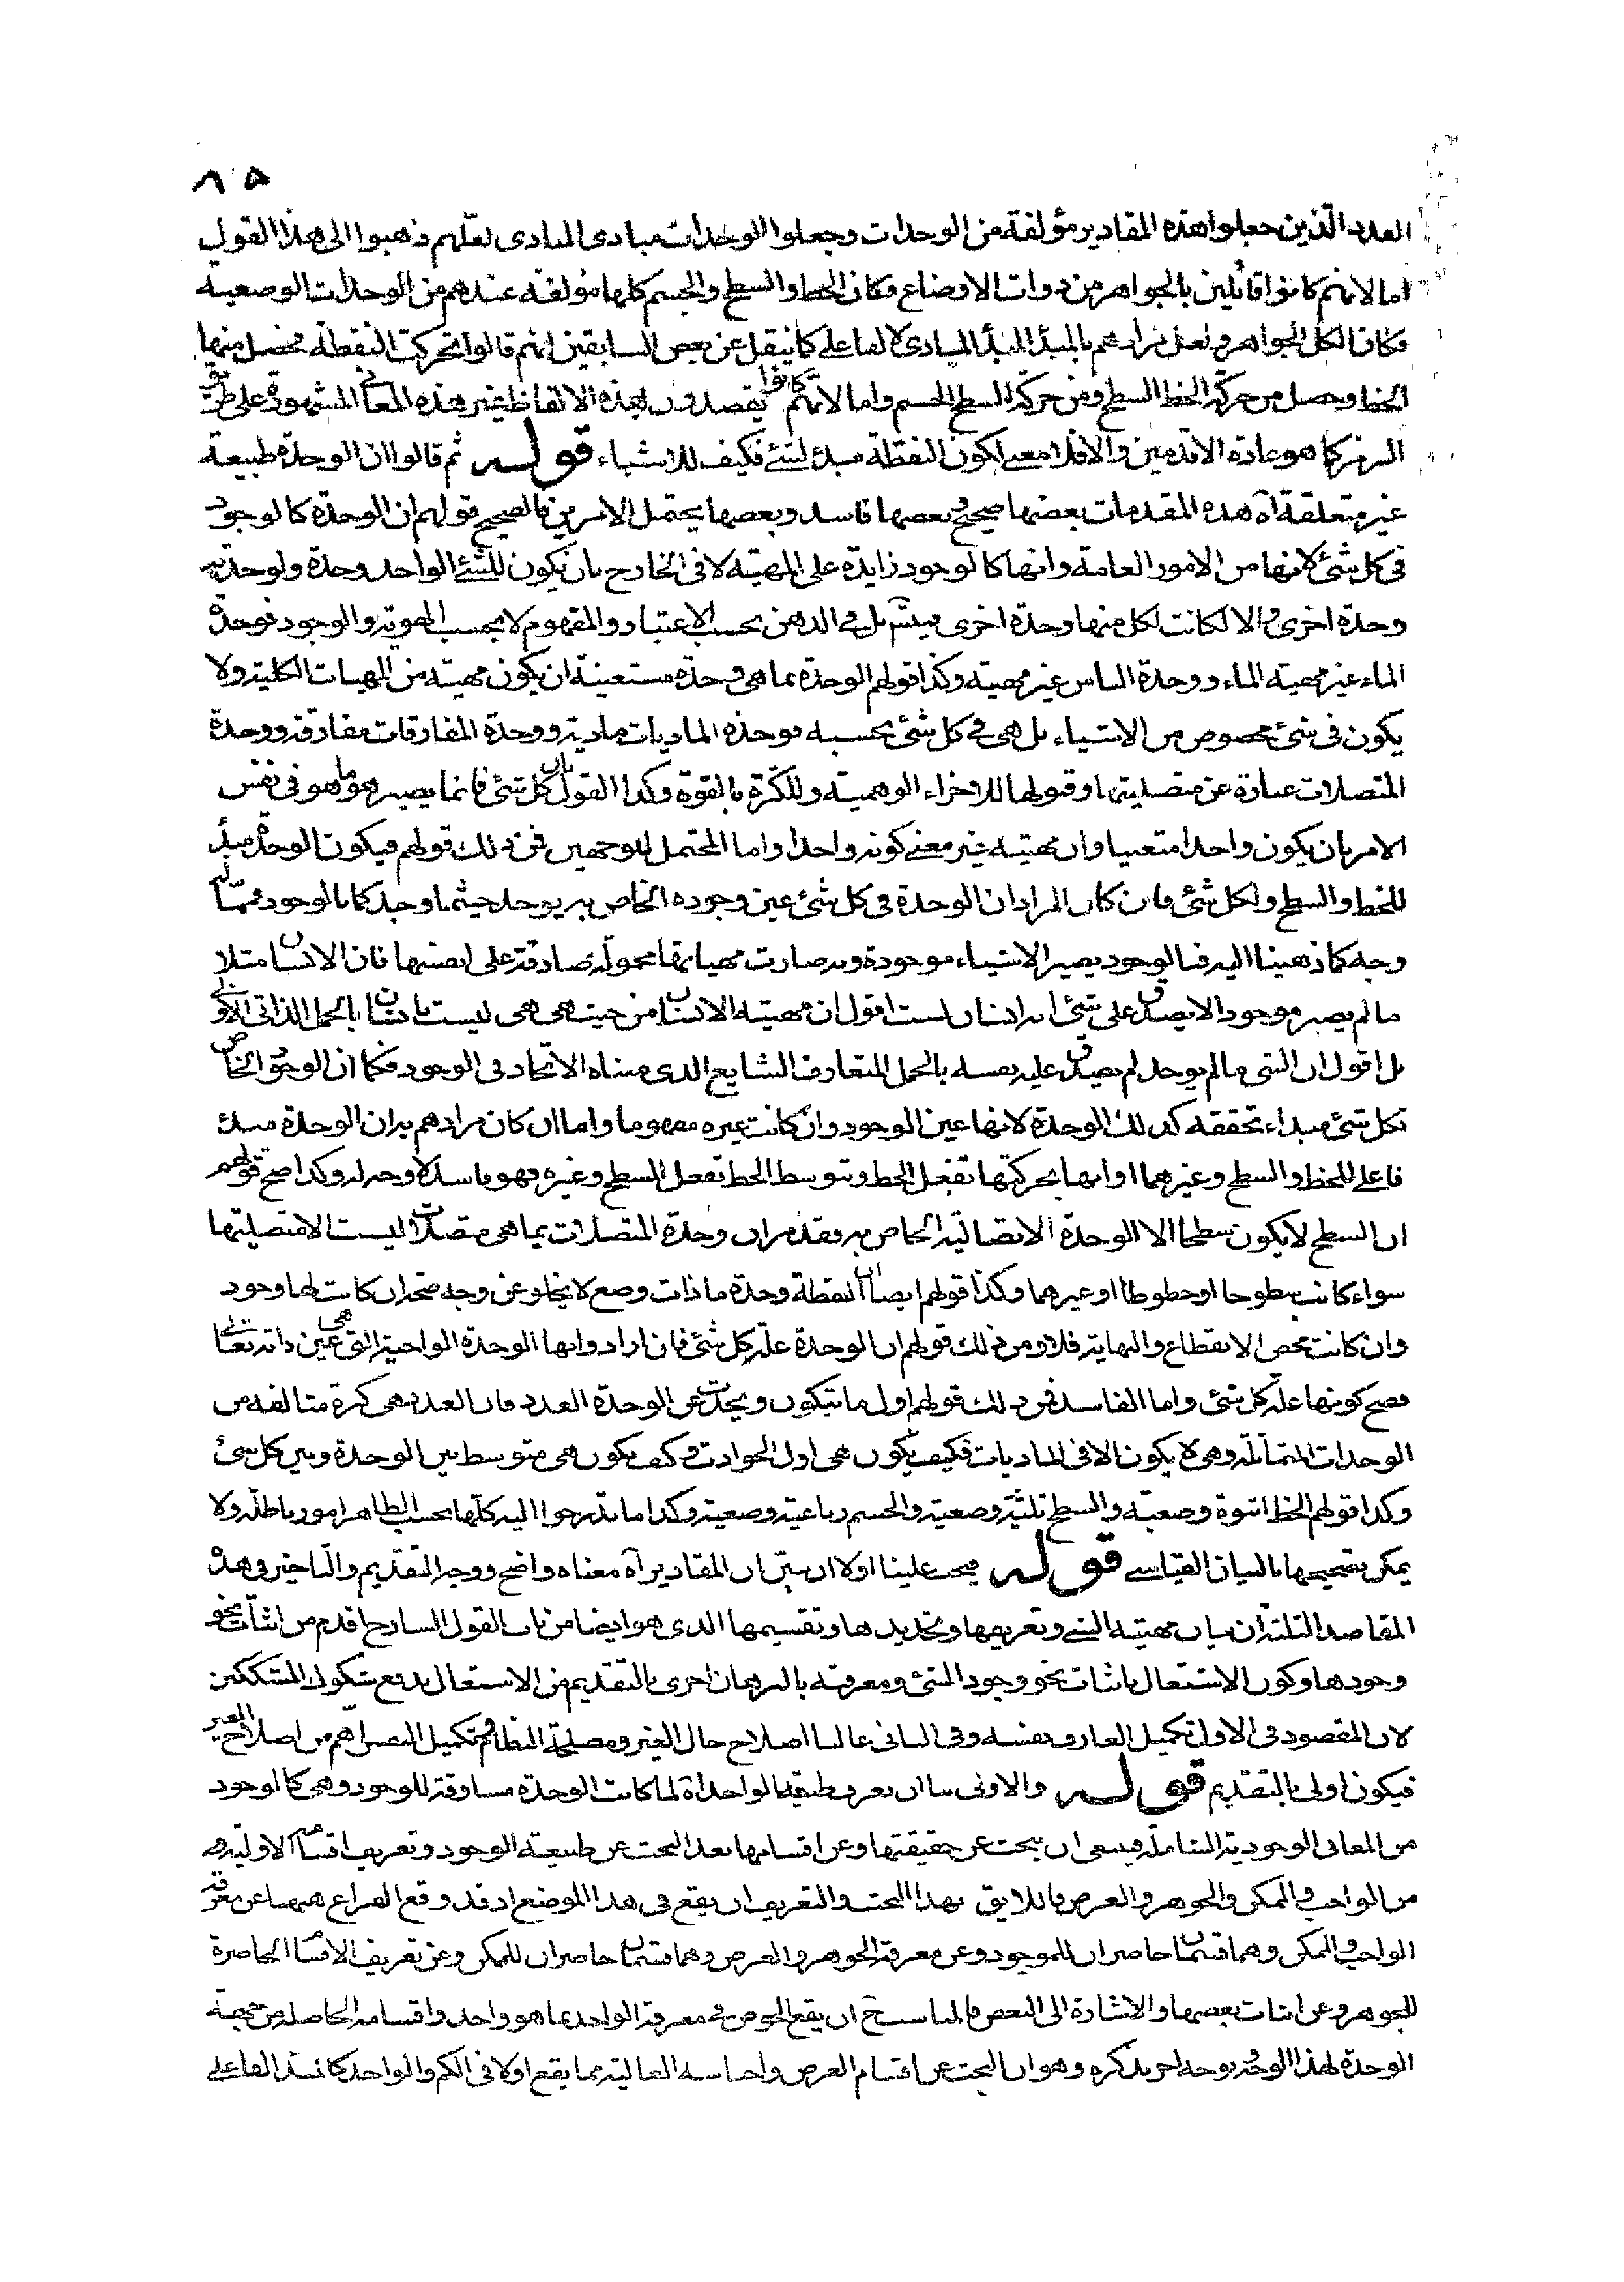 ٨٥
العدد الذين جعلوا هذه المقادير مؤلفة من الوحدات وجعلوا الوحدات مبادى المبادى لعلّهم ذهبوا الى هذا القول
اما لانهم كانوا قائلين بالجواهر من ذوات الاوضاع فكان الخط والسطح والجسم كلها مؤلفة عندهم من الوحدات الوضعية
فكان الكل الجواهر ولعل مرادهم بالمبدأ المبدأ المادى لا الفاعلى كما ينقل عن بعض السابقين انهم قالوا تحركت النقطة فحصل منها
الخط وحصل من حركة الخط السطح ومن حركة السطح الجسم واما لانهم كانوا يقصدون بهذه الالفاظ غير هذه المعانى المشهورة على طريق
الرمز كما هو عادة الاقدمين والا فلا معنى لكون النقطة مبدء لشئ فكيف للاشياء قوله ثم قالوا ان الوحدة طبيعة
غير متعلقة آه هذه المقدمات بعضها صحيح وبعضها فاسد وبعضها يحتمل الامرين فالصحيح قولهم ان الوحدة كالوجود
فى كل شئ لانها من الامور العامة وانها كالوجود زايدة على المهية لا فى الخارج بان يكون للشئ الواحد وحدة ولوحدته
وحدة اخرى والا لكانت لكل منها وحدة اخرى فيتسلسل بل فى الذهن بحسب الاعتبار والمفهوم لا بحسب الهوية والوجود فوحدة
الماء غير مهية الماء ووحدة الناس غير مهيته وكذا قولهم الوحدة بما هى وحدة مستغنية ان يكون مهية من المهيات الكلية ولا
يكون فى شئ مخصوص من الاشياء بل هى فى كل شئ بحسبه فوحدة الماديات مادية ووحدة المفارقات مفارقة ووحدة
المتصلات عبارة عن متصليتها وقبولها للاجزاء الوهمية وللكثرة بالقوة وكذا القول بان كل شئ فانما يصير هو ما هو فى نفس
الامر بان يكون واحدا متعينا وان مهيته غير معنى كونه واحدا واما المحتمل للوجهين فمن ذلك قولهم فيكون الوحدة مبدأ
للخط والسطح ولكل شئ فان كان المراد ان الوحدة فى كل شئ عين وجوده الخاص به يوجد حيثما وجد كما بالوجود
وجه كما ذهبنا اليه فبالوجود يصير الاشياء موجودة وبه صارت مهياتها محمولة صادقة على انفسها فان الانسان مثلا
ما لم يصر موجودا لا يصدق على شئ انه انسان لست اقول ان مهية الانسان من حيث هى هى ليست بانسان بالحمل الذاتى الاولى
بل اقول ان الشئ ما لم يوجد لم يصدق عليه نفسه بالحمل المتعارف الشايع الذى مبناه الاتحاد فى الوجود فكما ان الوجود الخاص
لكل شئ مبداء تحققه كذلك الوحدة لانها عين الوجود وان كانت غيره مفهوما واما ان كان مرادهم به ان الوحدة مبدء
فاعلى للخط والسطح وغيرهما او انها بحركتها تفعل الخط وبتوسط الخط تفعل السطح وغيره فهو فاسد لا وجه له وكذا صح قولهم
ان السطح لا يكون سطحا الا الوحدة الاتصالية الخاص به فقد مر ان وحدة المتصلات بما هى متصلات ليست الا متصليتها
سواء كانت سطوحا او خطوطا او غيرهما وكذا قولهم ايضا ان النقطة وحدة ما ذات وضع لا يخلو عن وجه صحة ان كانت لها وجود
وان كانت محض الانقطاع والنهاية فلا ومن ذلك قولهم ان الوحدة علة كل شئ فان ارادوا بها الوحدة الواجبية التى هى عين ذاته تعالى
فصح كونها علة كل شئ واما الفاسد فمن ذلك قولهم اول ما يتكون ويحدث عن الوحدة العدد فان العدد هى كثرة متالفه من
الوحدات المتماثلة وهى لا يكون الا فى الماديات فكيف يكون هى اول الحوادث وكيف يكون هى متوسط بين الوحدة وبين كل شئ
وكذا قولهم الخط اثنوة وضعية والسطح ثلثية وضعية والجسم رباعية وضعية وكذا ما تدرجوا اليه كلها بحسب الظاهر امور باطلة ولا
يمكن تصحيحها بالبيان القياسى قوله فيجب علينا اولا ان نبيّن ان المقادير آه معناه واضح ووجه التقديم والتاخير فى هذه
المقاصد الثلثة ان بيان مهية الشئ وتعريفها وتحديدها وتقسيمها الذى هو ايضا من باب القول الشارح اقدم من اثبات نحو
وجودها وكون الاشتغال باثبات نحو وجود الشئ ومعرفته بالبرهان احرى بالتقديم من الاشتغال بدفع شكوك المشككين
لان المقصود فى الاول تكميل العارف نفسه وفى الثانى غالبا اصلاح حال الغير ومصلحة النظام وتكميل النفس اهم من اصلاح الغير
فيكون اولى بالتقديم قوله والاولى بنا ان نعرف طبيعة الواحد آه لما كانت الوحدة مساوقة للوجود وهى كالوجود
من المعانى الوجودية الشاملة فينبغى ان يبحث عن حقيقتها وعن اقسامها بعد البحث عن طبيعة الوجود وتعريف اقسامه الاولية
من الواجب والممكن والجوهر والعرض فاللايق بهذا البحث والتعريف ان يقع فى هذا الموضع اذ قد وقع الفراغ هيهنا عن معرفة
الواجب والممكن وهما قسمان حاصران للموجود وعن معرفة الجوهر والعرض وهما قسمان حاصران للممكن وعن تعريف الاقسام الحاصرة
للجوهر وعن اثبات بعضها والاشارة الى البعض فالمناسب ان يقع الخوض فى معرفة الواحد بما هو واحد واقسامه الحاصلة من جهة
الوحدة لهذا الوجه بوجه اخر يذكره وهو ان البحث عن اقسام العرض واجناسه العالية مما يقع اولا فى الكم والواحد كالمبدأ الفاعلى